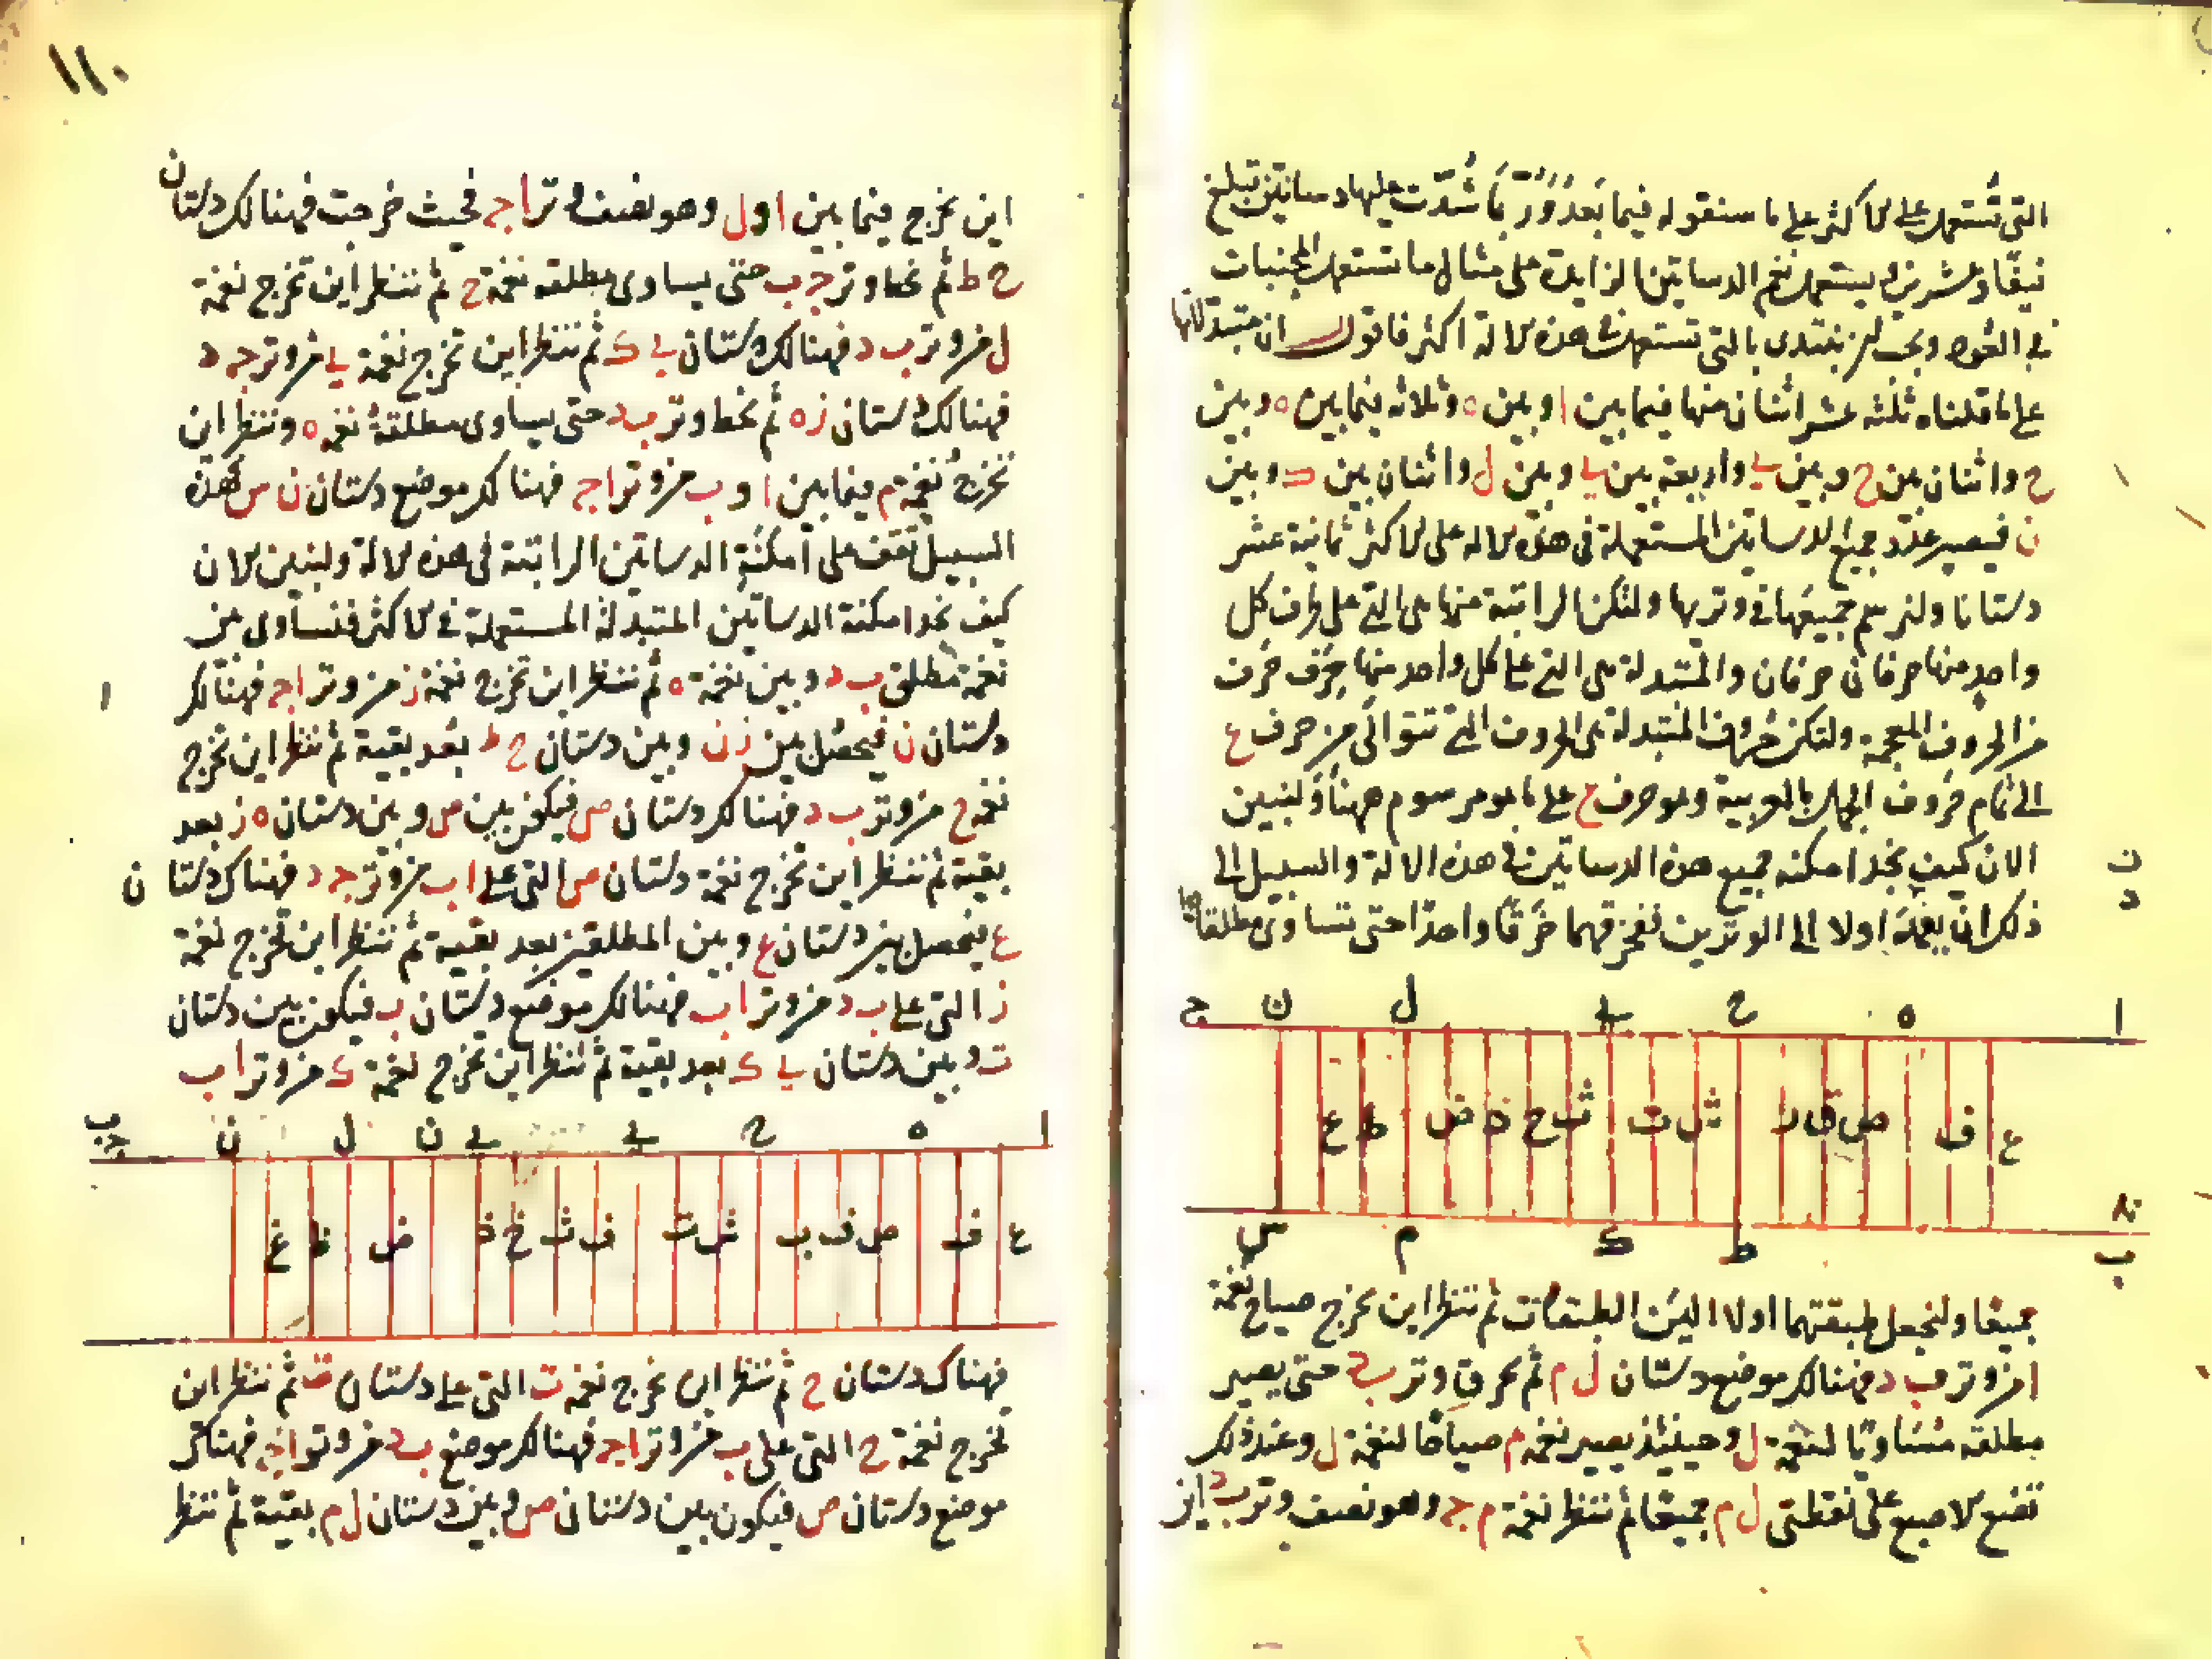 التى تستعمل على الاكثر على ما سنقوله فيما بعد وربما شدت عليها دساتين تبلغ
نيفا وعشرين يستعمل نغم الدساتين الزايدة على مثال ما تستعمل المجنبات
فى العود ويجب ان نبتدى بالتى تستعمل فى هذه الالة اكثر فاقول ان متبدلاتها
على ما قلناه ثلثه عشر اثنان منها فيما بين ا وبين ه وثلاثه فيما بين ه وبين
ح واثنان بين ح وبين ى واربعة بين ى وبين ل واثنان بين وبين
ن فيصير عدد جميع الدساتين المستعملة فى هذه الاله على الاكثر ثمانية عشر
دستانا ولنرسم جميعها فى وتريها ولتكن الراتبة منها هى التى على طرف كل
واحد منها حرفان حرفان والمتبدلة هى التى على كل واحد منها حرف حرف
من الحروف المعجمة ولتكن حروف المتبدلة هى الحروف التى تتوالى من حرف ع
الى تمام حروف الجمل بالعربية وهو حرف غ على ما هو مرسوم ههنا ولنبين
الان كيف نجد امكنه جميع هذه الدساتين فى هذه الالة والسبيل الى
ذلك ان نعمد اولا الى الوترين فنحزقهما حزقا واحدا حتى تتساوى مطلقاهما
ا ه ح ى ل ن ج
ع ف ص ق ر ش ت ث خ ذ ض ظ غ
ب ط ك م س
جميعا ولنجعل طبقتهما اولا الين الطبقات ثم ننظر اين يخرج صياح نغمة
ا من وتر ب د فهنالك موضع دستان ل م ثم نحزق وتر ب د حتى يصير
مطلقه مساويا لنغمة ل وحينئذ يصير نغمه م صياحا لنغمة ل وعند ذلك
نضع الاصبع على نقطتى ل م جميعا ثم ننظر نغمة م ج وهو نصف وتر ب د اين
١١٠
اين يخرج فيما بين ا و ل وهو نصف وتر ا ج فحيث خرجت فهنالك دستان
ح ط ثم نحط وتر ج ب حتى يساوى مطلقه نغمة ح ثم ننظر اين تخرج نغمة
ل من وتر ب د فهنالك دستان ى ك ثم ننظر اين تخرج نغمة ى من وتر ج د
فهنالك دستان ز ه ثم نحط وتر ب د حتى يساوى مطلقة نغمه ه وننظر اين
تخرج نغمة م فيما بين ا و ب من وتر ا ج فهنالك موضع دستان ن س فهذه
السبيل نقف على امكنة الدساتين الراتبة فى هذه الالة ولنبين الان
كيف نجد امكنة الدساتين المتبدلة المستعملة فى الاكثر فنساوى بين
نغمة مطلق ب د وبين نغمة ه ثم ننظر اين تخرج نغمة ز من وتر ا ج فهنالك
دستان ن فيحصل بين ز ن وبين دستان ح ط بعد بقية ثم ننظر اين تخرج
نغمة ح من وتر ب د فهنالك دستان ص فيكون بين ص وبين دستان ه ز بعد
بقية ثم ننظر اين تخرج نغمة دستان ص التى على ا ب من وتر ج د فهناك دستان
ع فيحصل بين دستان ع وبين المطلقين بعد بقية ثم ننظر اين تخرج نغمة
ز التى على ب د من وتر ا ب فهنالك موضع دستان ب فيكون بين دستان
ت وبين دستان ى ك بعد بقية ثم ننظر اين تخرج نغمة ك من وتر ا ب
ا ه ح ى ى ن ل ن
ع ف ص ف ب ش ت ف ث خ ذ ض ظ غ
فهناك دستان ح ثم ننظر اين تخرج نغمة ت التى على دستان ث ثم ننظر اين
تخرج نغمة ح التى على ب من وتر ا ج فهنالك موضع ب د من وتر ا ج فهناك
موضع دستان ص فيكون بين دستان ص وبين دستان ل م بقية ثم ننظر